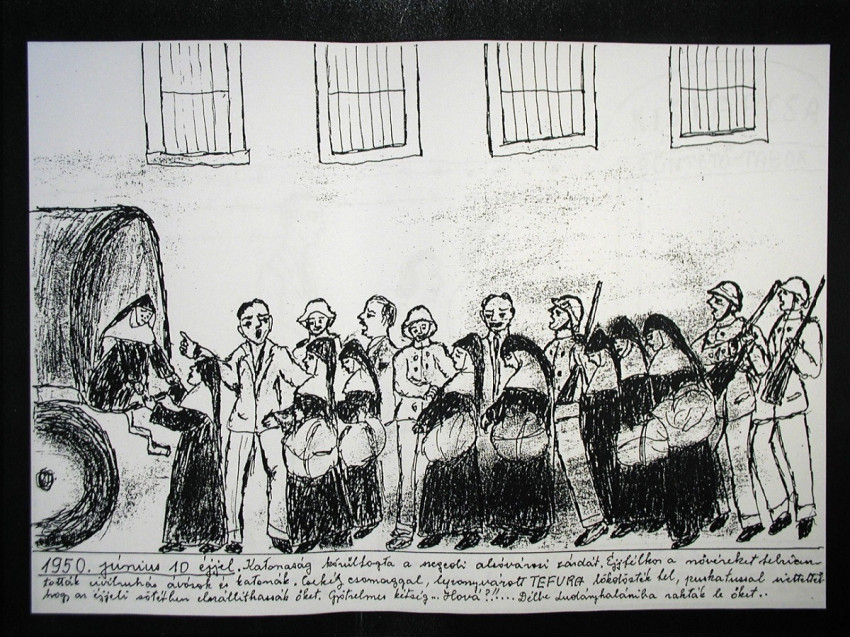 1950. június 10 éjjel. Katonaság körülfogta a szegedi alsóvárosi zárdát. Éjfélkor a nővéreket felrian-
tották civilruhás ávósok és katonák. Csekély csomaggal, lesponyvázott TEFURA lökdösték fel, puskatussal
hogy az éjjeli sötétben elszállíthassák őket. Gyötrelmes kétség... Hová?!!... Délbe Ludányhalásziba rakták le őket..